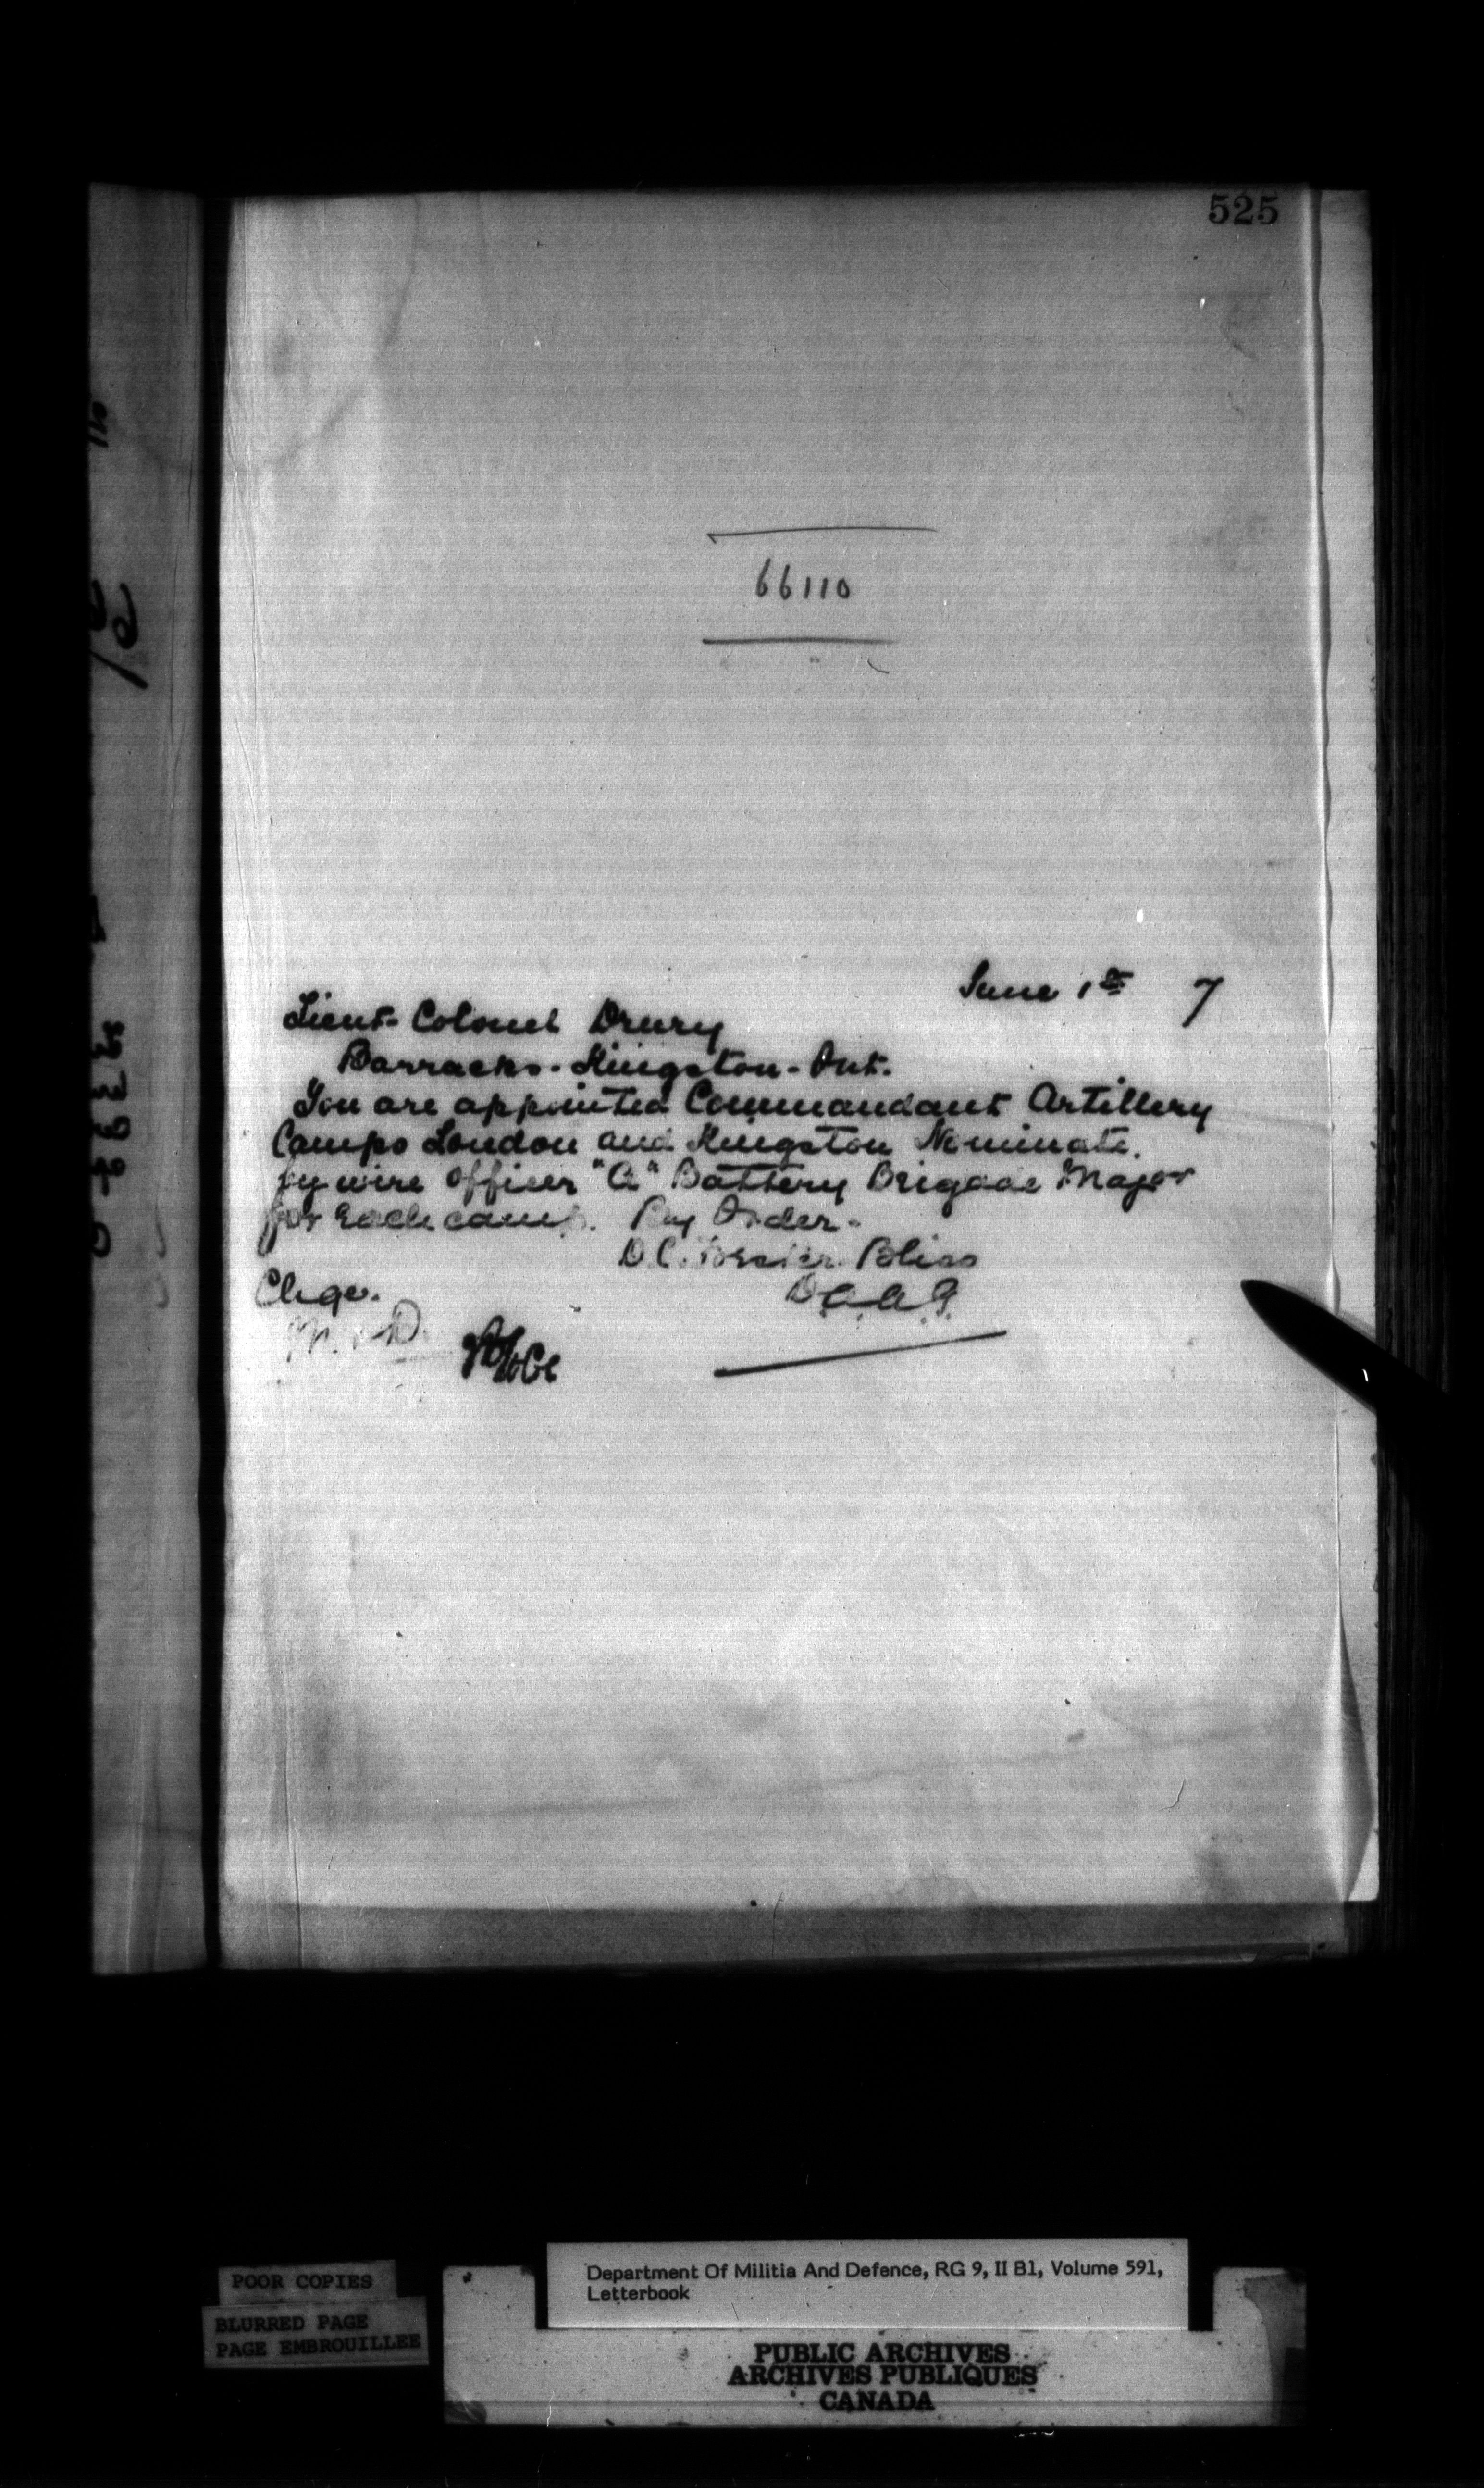 525
66110
June 1st 7
Lieut- Colonel Drury
Barracks - Kingston - Ont.
You are appointed Commandant Artillery
Camps London and Kingston Nominate
by wire officer "A" Battery Brigade Major
for Each camp. By Order -
D.C. Bliss
D.A.A.G.
Chge.
M. & D.
POOR COPIES
BLURRED PAGE
PAGE EMBROUILLEE
Department Of Militia And Defence, RG 9, II B1, Volume 591,
Letterbook
PUBLIC ARCHIVES
ARCHIVES PUBLIQUES
CANADA